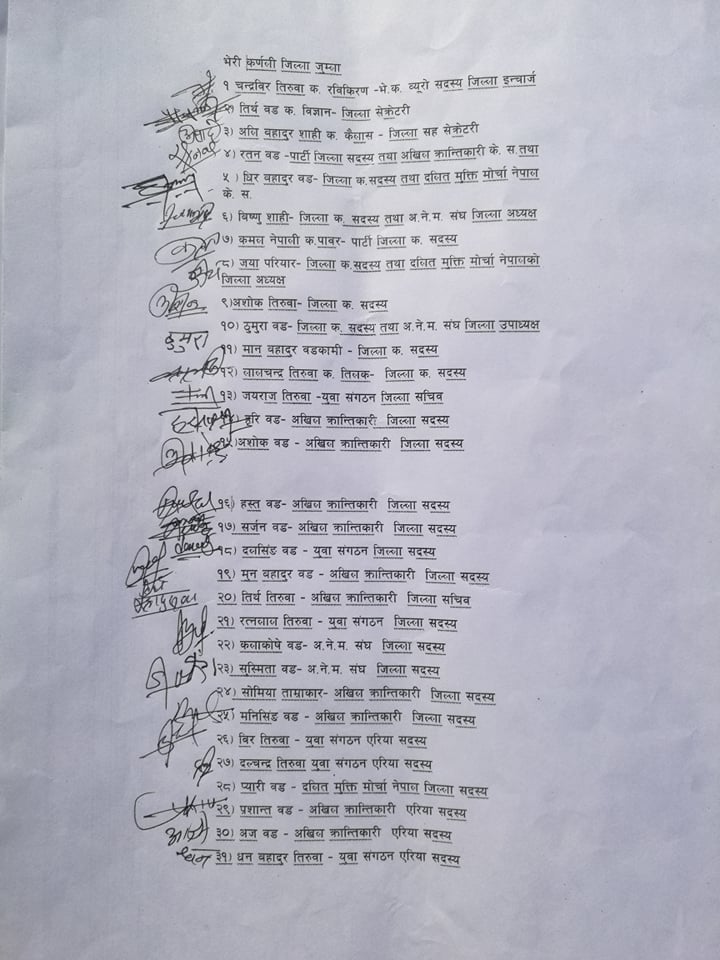 भेरी कर्णली जिल्ला जुम्ला
१ चन्द्रविर तिरुवा क. रविकिरण -भे.क. व्यूरो सदस्य जिल्ला इन्चार्ज
२) तिर्थ वड क. विज्ञान- जिल्ला सेक्रेटरी
३) अलि बहादुर शाही क. कैलास - जिल्ला सह सेक्रेटरी
४) रतन वड -पार्टी जिल्ला सदस्य तथा अखिल क्रान्तिकारी के. स.तथा
५ ) धिर बहादुर वड- जिल्ला क.सदस्य तथा दलित मुक्ति मोर्चा नेपाल
के. स.
६) विष्णु शाही- जिल्ला क. सदस्य तथा अ.ने.म. संघ जिल्ला अध्यक्ष
७) कमल नेपाली क.पावर- पार्टी जिल्ला क. सदस्य
८) जया परियार- जिल्ला क.सदस्य तथा दलित मुक्ति मोर्चा नेपालको
जिल्ला अध्यक्ष
९)अशोक तिरुवा- जिल्ला क. सदस्य
१०) ठुमुरा वड- जिल्ला क. सदस्य तथा अ.ने.म. संघ जिल्ला उपाध्यक्ष
ठुमुरा
११) मान बहादुर वडकामी - जिल्ला क. सदस्य
१२) लालचन्द्र तिरुवा क. तिलक- जिल्ला क. सदस्य
१३) जयराज तिरुवा -युवा संगठन जिल्ला सचिव
१४) हरि वड- अखिल क्रान्तिकारी जिल्ला सदस्य
१५)अशोक वड - अखिल क्रान्तिकारी जिल्ला सदस्य
१६) हस्त वड- अखिल क्रान्तिकारी जिल्ला सदस्य
१७) सर्जन वड- अखिल क्रान्तिकारी जिल्ला सदस्य
१८) दलसिंड वड - युवा संगठन जिल्ला सदस्य
१९) मुन बहादुर वड - अखिल क्रान्तिकारी जिल्ला सदस्य
२०) तिर्थ तिरुवा - अखिल क्रान्तिकारी जिल्ला सचिव
२१) रत्नलाल तिरुवा - युवा संगठन जिल्ला सदस्य
२२) कलाकोषे वड- अ.ने.म. संघ जिल्ला सदस्य
२३) सुस्मिता वड- अ.ने.म. संघ जिल्ला सदस्य
२४) सोमिया ताम्राकार- अखिल क्रान्तिकारी जिल्ला सदस्य
२५) मनिसिंड वड - अखिल क्रान्तिकारी जिल्ला सदस्य
२६) विर तिरुवा - युवा संगठन एरिया सदस्य
२७) दल्चन्द्र तिरुवा युवा संगठन एरिया सदस्य
२८) प्यारी वड - दलित मुक्ति मोर्चा नेपाल जिल्ला सदस्य
२९) प्रशान्त वड - अखिल क्रान्तिकारी एरिया सदस्य
३०) अज वड - अखिल क्रान्तिकारी एरिया सदस्य
धन ३१) धन बहादुर तिरुवा - युवा संगठन एरिया सदस्य